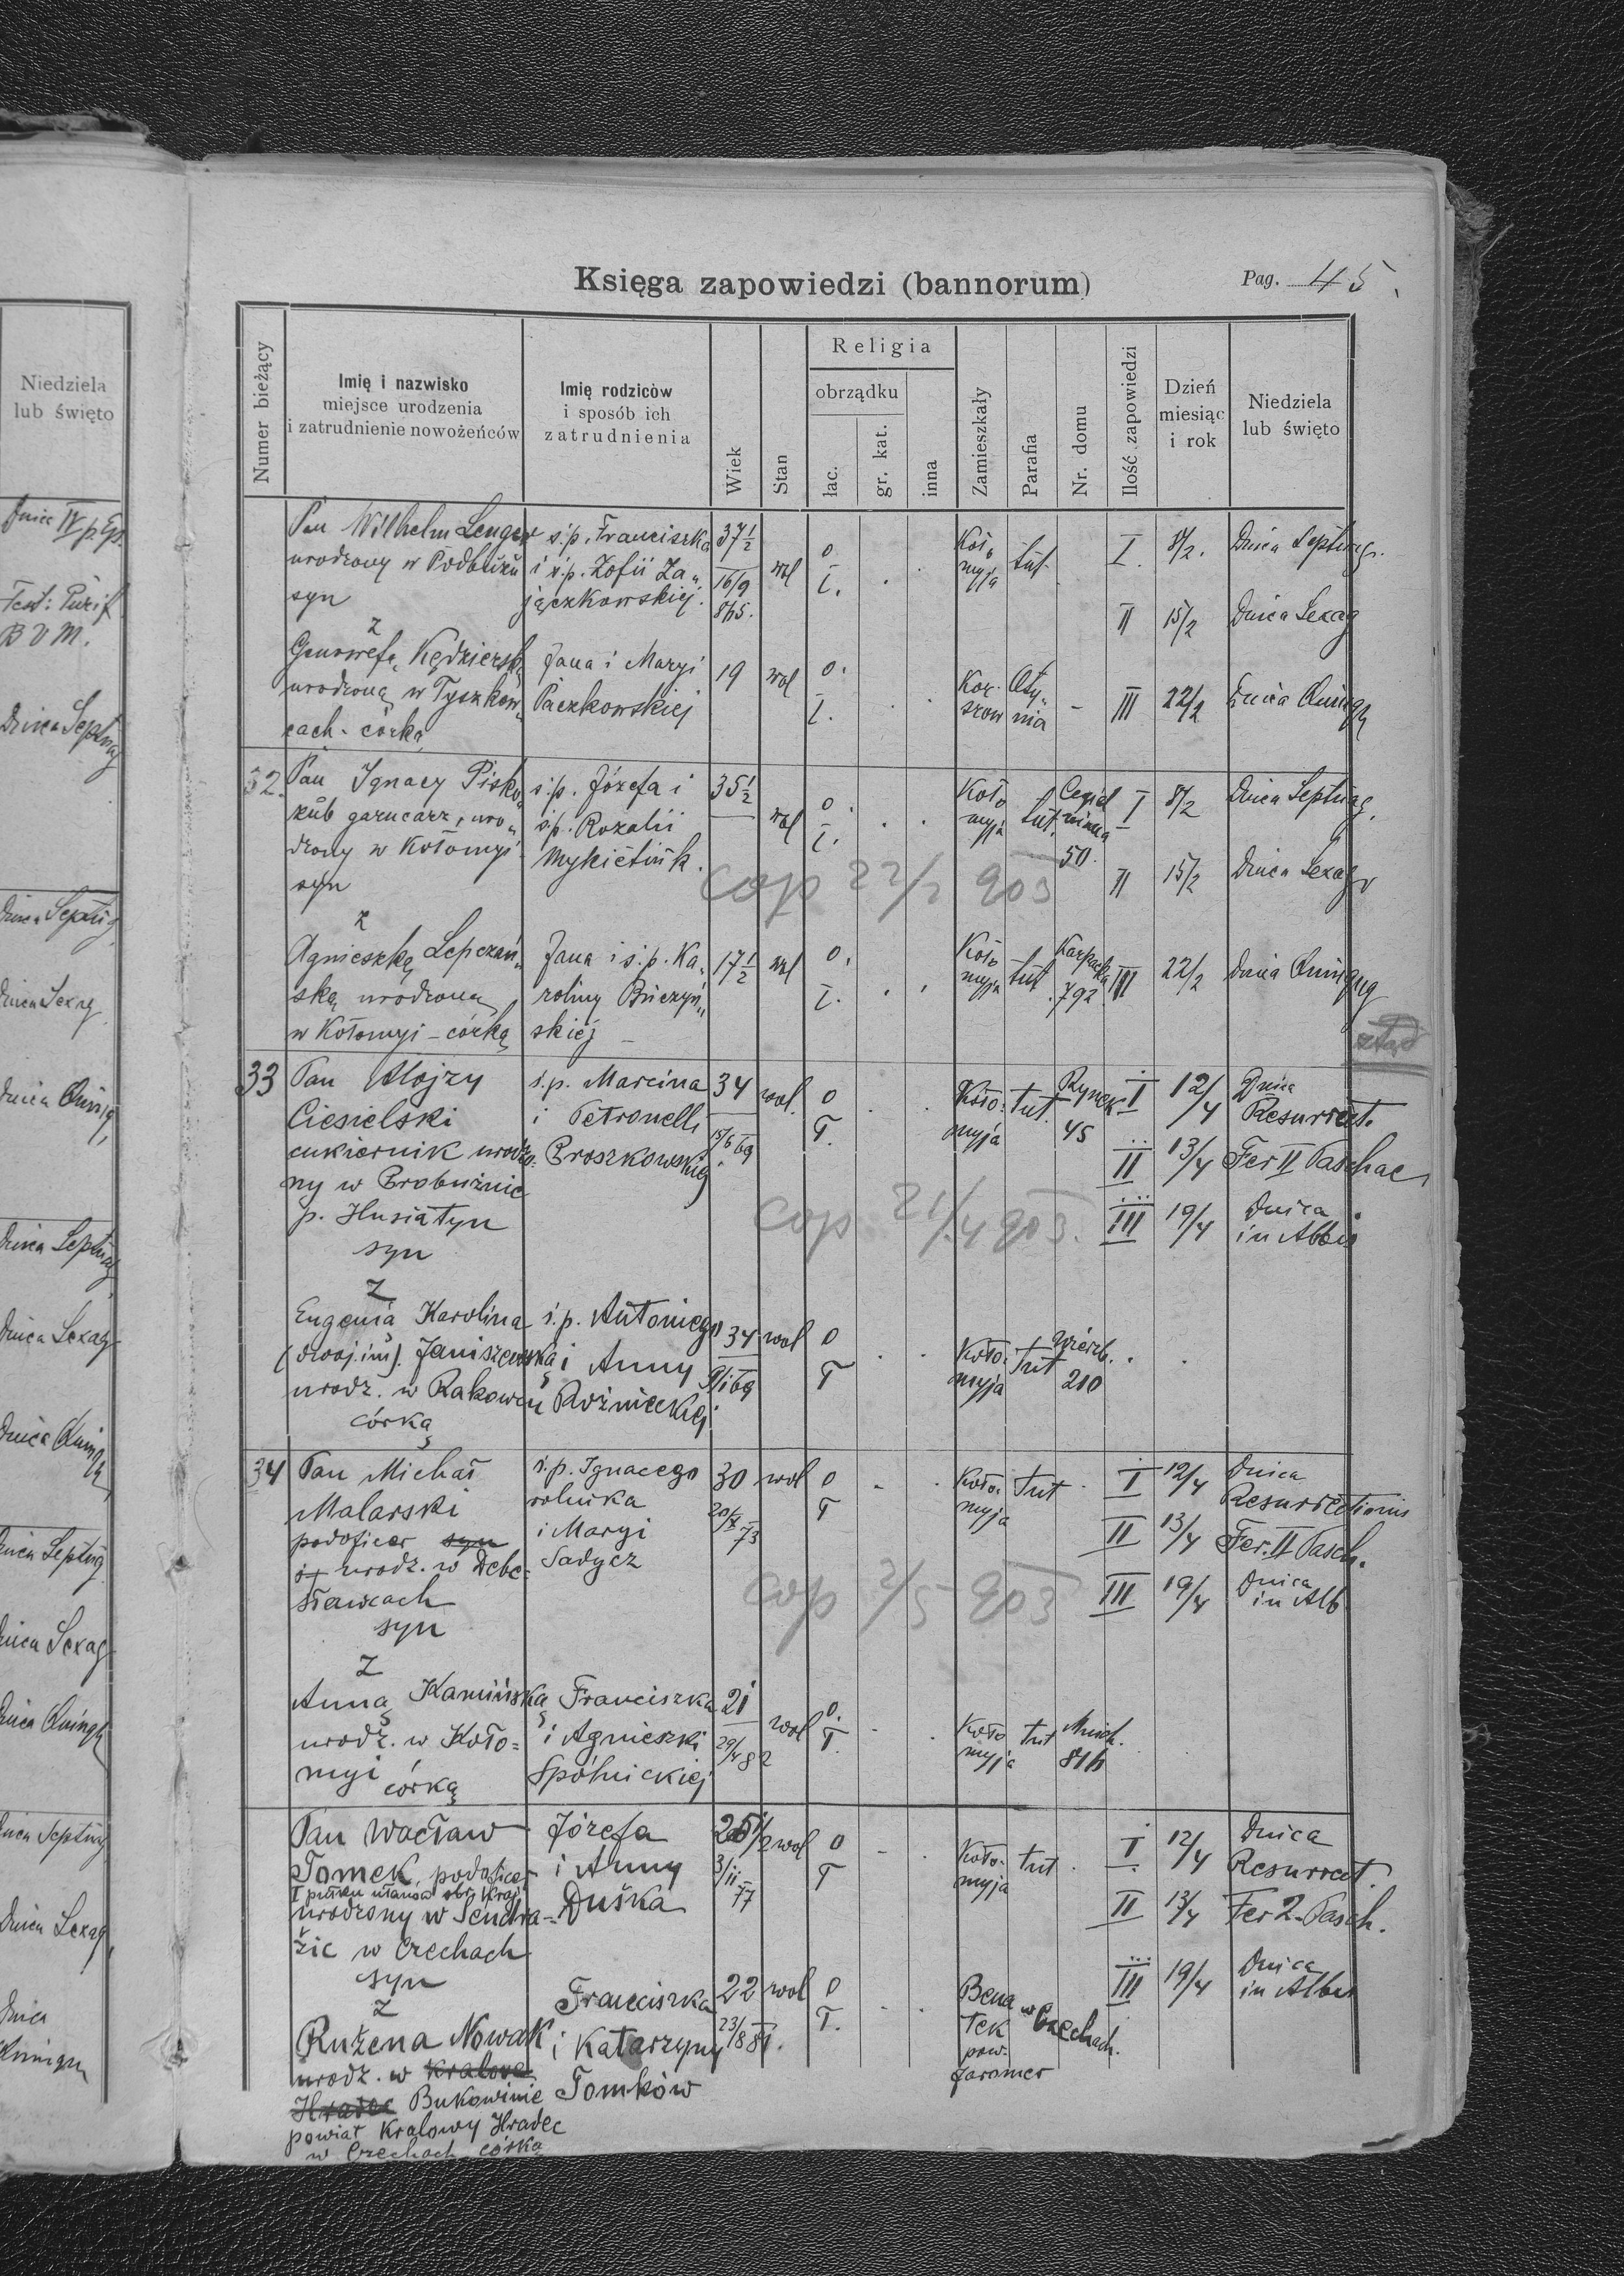 Księga zapowiedzi (bannorum)
Pag. 45.
Numer bieżący
Imię i nazwisko
miejsce urodzenia
i zatrudnienie nowożeńców
Imię rodziców
i sposób ich
zatrudnienia
Wiek
Stan
Religia
obrządku
łac.
gr. kat.
inna
Zamieszkały
Parafia
Nr. domu
Ilość zapowiedzi
Dzień
miesiąc
i rok
Niedziela
lub święto
Niedziela
lub święto
Dnica IV p. Ep.
Fest: Purif
B V M.
Dnica Septuag
Dnica Septuag
Dnica Sexag
Dnica Quinq
Dnica Septuag
Dnica Sexag
Dnica Quinq
Dnica Septuag
Dnica Sexag
Dnica Quinq
Dnica Septuag
Dnica Sexag
Dnica
Quinqu
Pan Wilhelm Lenger
urodzony w Podbużu
syn
z
Genowefą Kędzierską
urodzoną w Tyszkow„
cach - córką
ś.p. Franciszka
i ś.p. Zofii Za„
jączkowskiej.
37½
16/9
865.
wol
o
ł.
Koło
myja
tut.
I. 8/2. Dnica Septuag.
II 15/2 Dnica Sexag
Jana i Maryi
Paczkowskiej
19
wol
o.
ł.
Kor
szow
Oty„
nia
-
III 22/2 Dnica Quinq
32.
Pan Ignacy Pisko„
zub garncarz, uro„
dzony w Kołomyi
syn
z
Agnieszką Lepczań„
ską urodzoną
w Kołomyi - córką
ś.p. Józefa i
ś.p. Rozalii
Mykietiuk.
35½
wol
o.
ł.
Koło
myja
tut.
Cegiel
niana
50.
I 8/2 Dnica Septuag.
II 15/2 Dnica Sexag
cop 22/2 903
Jana i ś.p. Ka„
roliny Buczyń„
skiej
17½
wol
o.
ł.
Koło
myja
tut
Karpacka
792
III 22/2 Dnica Quinqug
33
Pan Alojzy
Ciesielski
cukiernik urodzo=
ny w Probużnie
p. Husiatyn
syn
z
Eugenią Karolina
(dwoj. im). Janiszewską
urodz. w Rakowcu
córką
ś.p. Marcina
i Petronelli
Proszkowskiej
34
15/6 69
wol.
o
ł.
Koło=
myja
tut.
Rynek
45
I 12/4 Dnica
Resurrect.
II 13/4 Fer II Paschae
III 19/4 Dnica
in Albis
cop. 21/4 903.
ś.p. Antoniego
i Anny
Rożnieckiej
34
9/1 69
wol
o
ł
Koło=
myja
tut
Wierzb.
210
34
Pan Michał
Malarski
podoficer syn
urodz. w Debe=
sławcach
syn
z
Anną Kamińską
urodz. w Koło=
myi córką
ś.p. Ignacego
rolnika
i Maryi
Sadycz
30
20/X 73
wol
o
ł
Koło=
myja
tut
I 12/4 Dnica
Resurrectionis
II 13/4 Fer. II Pasch.
III 19/4 Dnica
in Alb
cop 2/5 903
Franciszka
i Agnieszki
Spólnickiej
21
29/4 82
wol
o.
ł.
Koło
myja
tut
Mnich.
Pan Wacław
Tomek, podoficer
I pułku ułanów obr. kraj
urodzony w Sendra=
žic w Czechach
syn
z
Ružena Nowak
urodz. w Kralove
Hradec Bukowinie
powiat Kralowy Hradec
w Czechach córką
Józefa
i Anny
Duška
25½
3/11 77
wol
o
ł
Koło=
myja
tut
I 12/4 Dnica
Resurrect.
II 13/4 Fer 2. Pasch.
III 19/4 Dnica
in Albis
Franciszka
i Katarzyny
Tomków
22
23/8 81.
wol
o
ł.
Bena
tek
pow.
Jaromer
w Czechach.